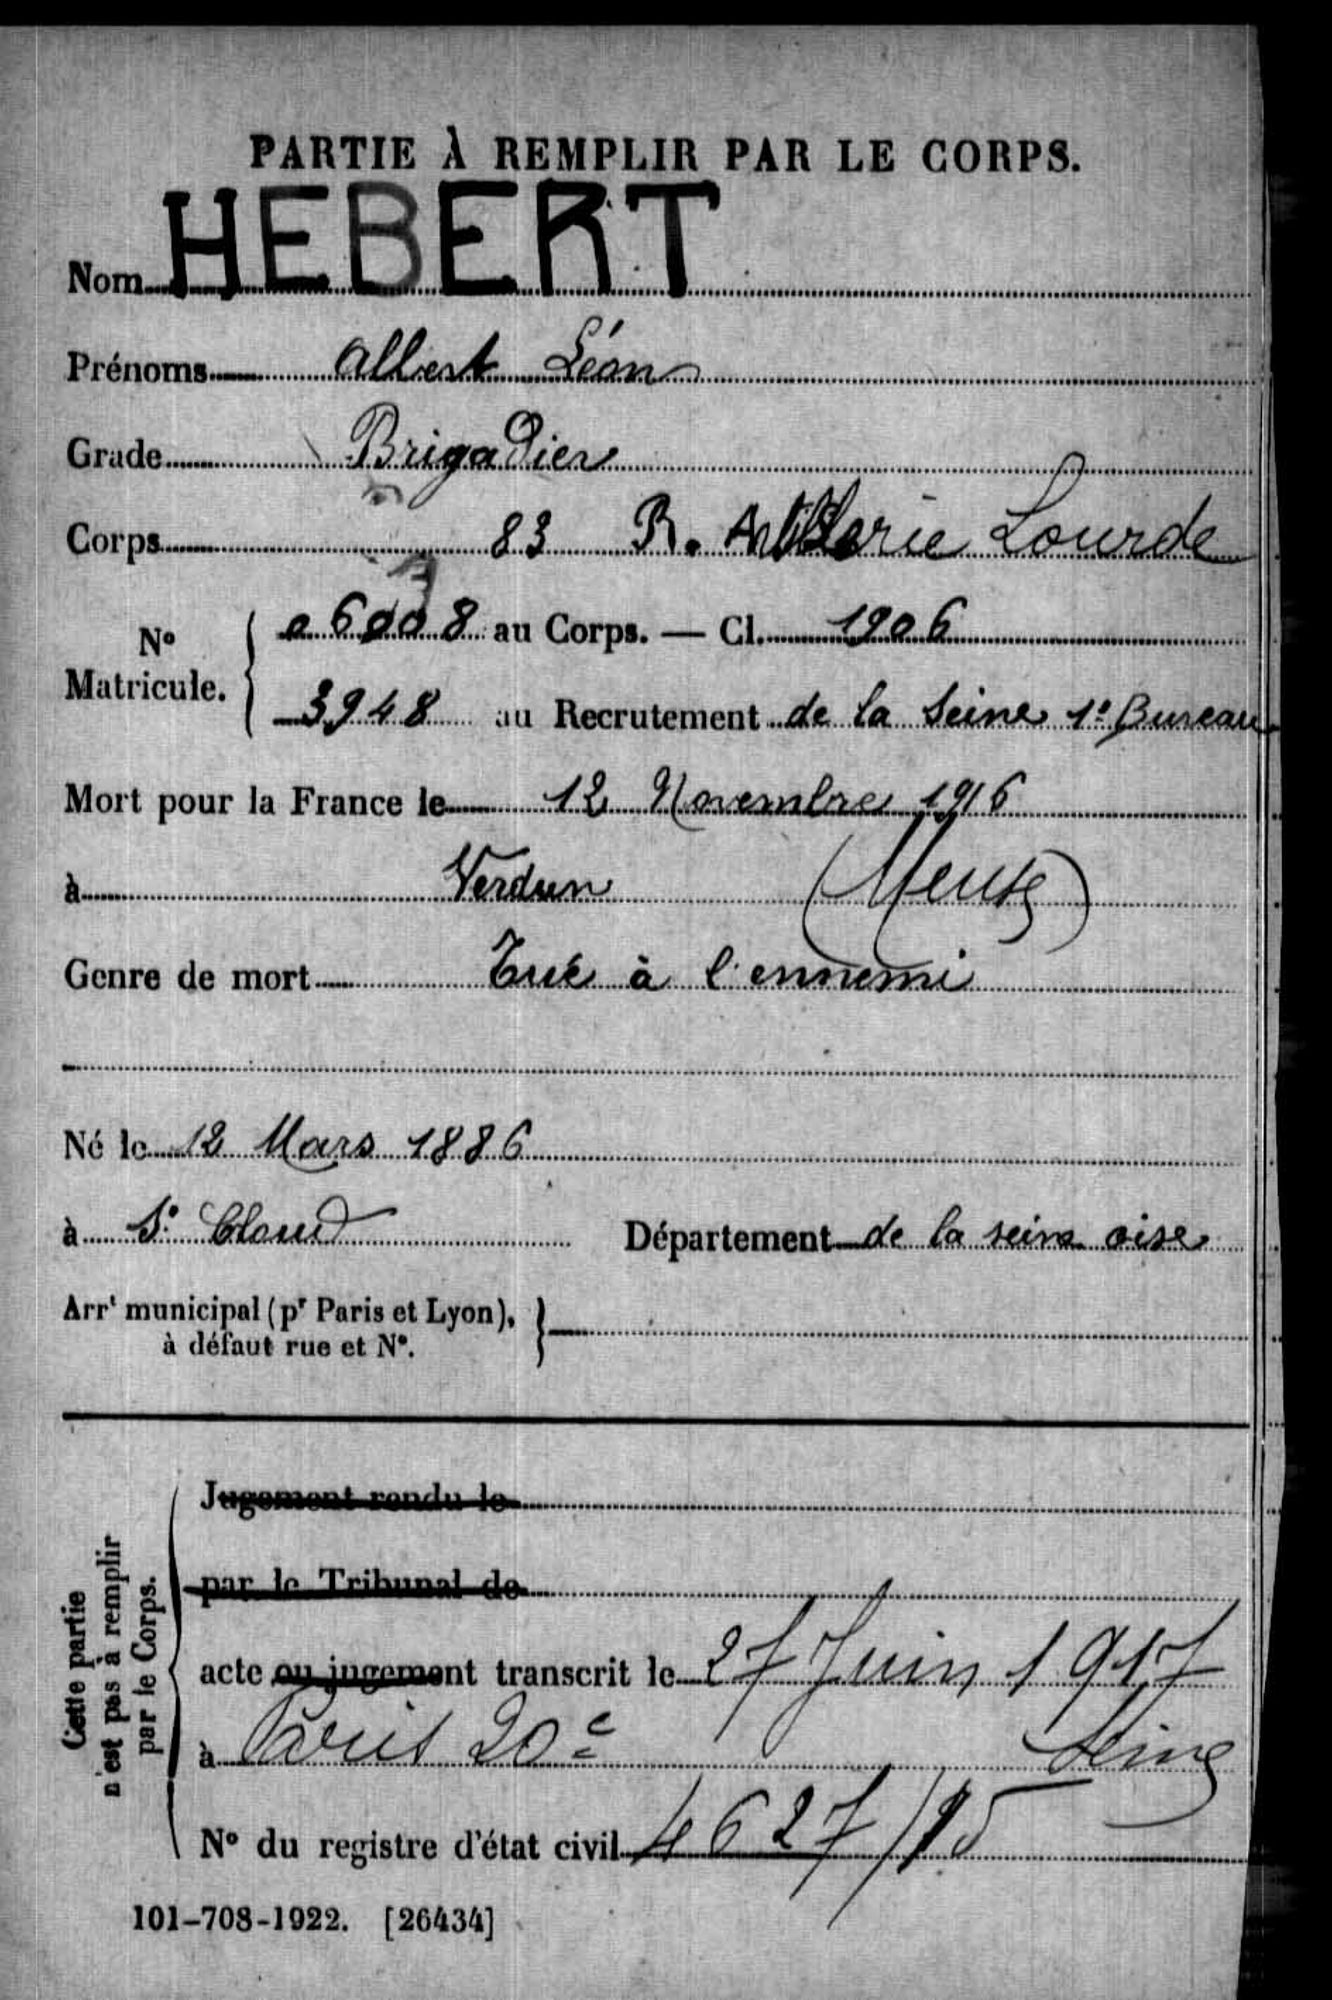 PARTIE À REMPLIR PAR LE CORPS.
Nom HEBERT
Prénoms Albert Léon
Grade Brigadier
Corps 83 R. Artillerie Lourde
N° Matricule. { 06008 au Corps. — Cl. 1906
3948 au Recrutement de la Seine 1° Bureau
Mort pour la France le 12 Novembre 1916
à Verdun (Meuse)
Genre de mort Tué à l'ennemi
Né le 12 Mars 1886
à St Cloud Département de la seine oise
Arrt municipal (pr Paris et Lyon),
à défaut rue et N°.
Cette partie
n'est pas à remplir
par le Corps.
Jugement rendu le
par le Tribunal de
acte ou jugement transcrit le 27 Juin 1917
à Paris 20e Seine
N° du registre d'état civil 4627/15
101-708-1922. [26434]